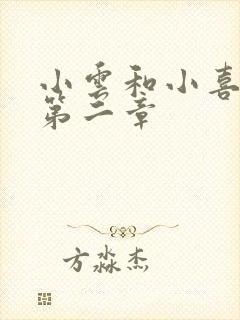 小雲和小喜
第二章
方淼杰